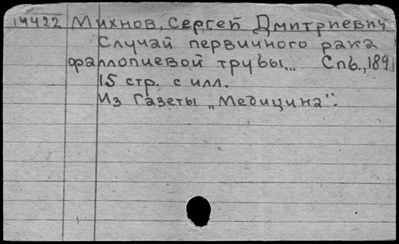 14422 Михнов, Сергей Дмитриевич
Случай первичного рака
фаллопиевой трубы... Спб., 189
15 стр. с илл.
Из Газеты „Медицина".